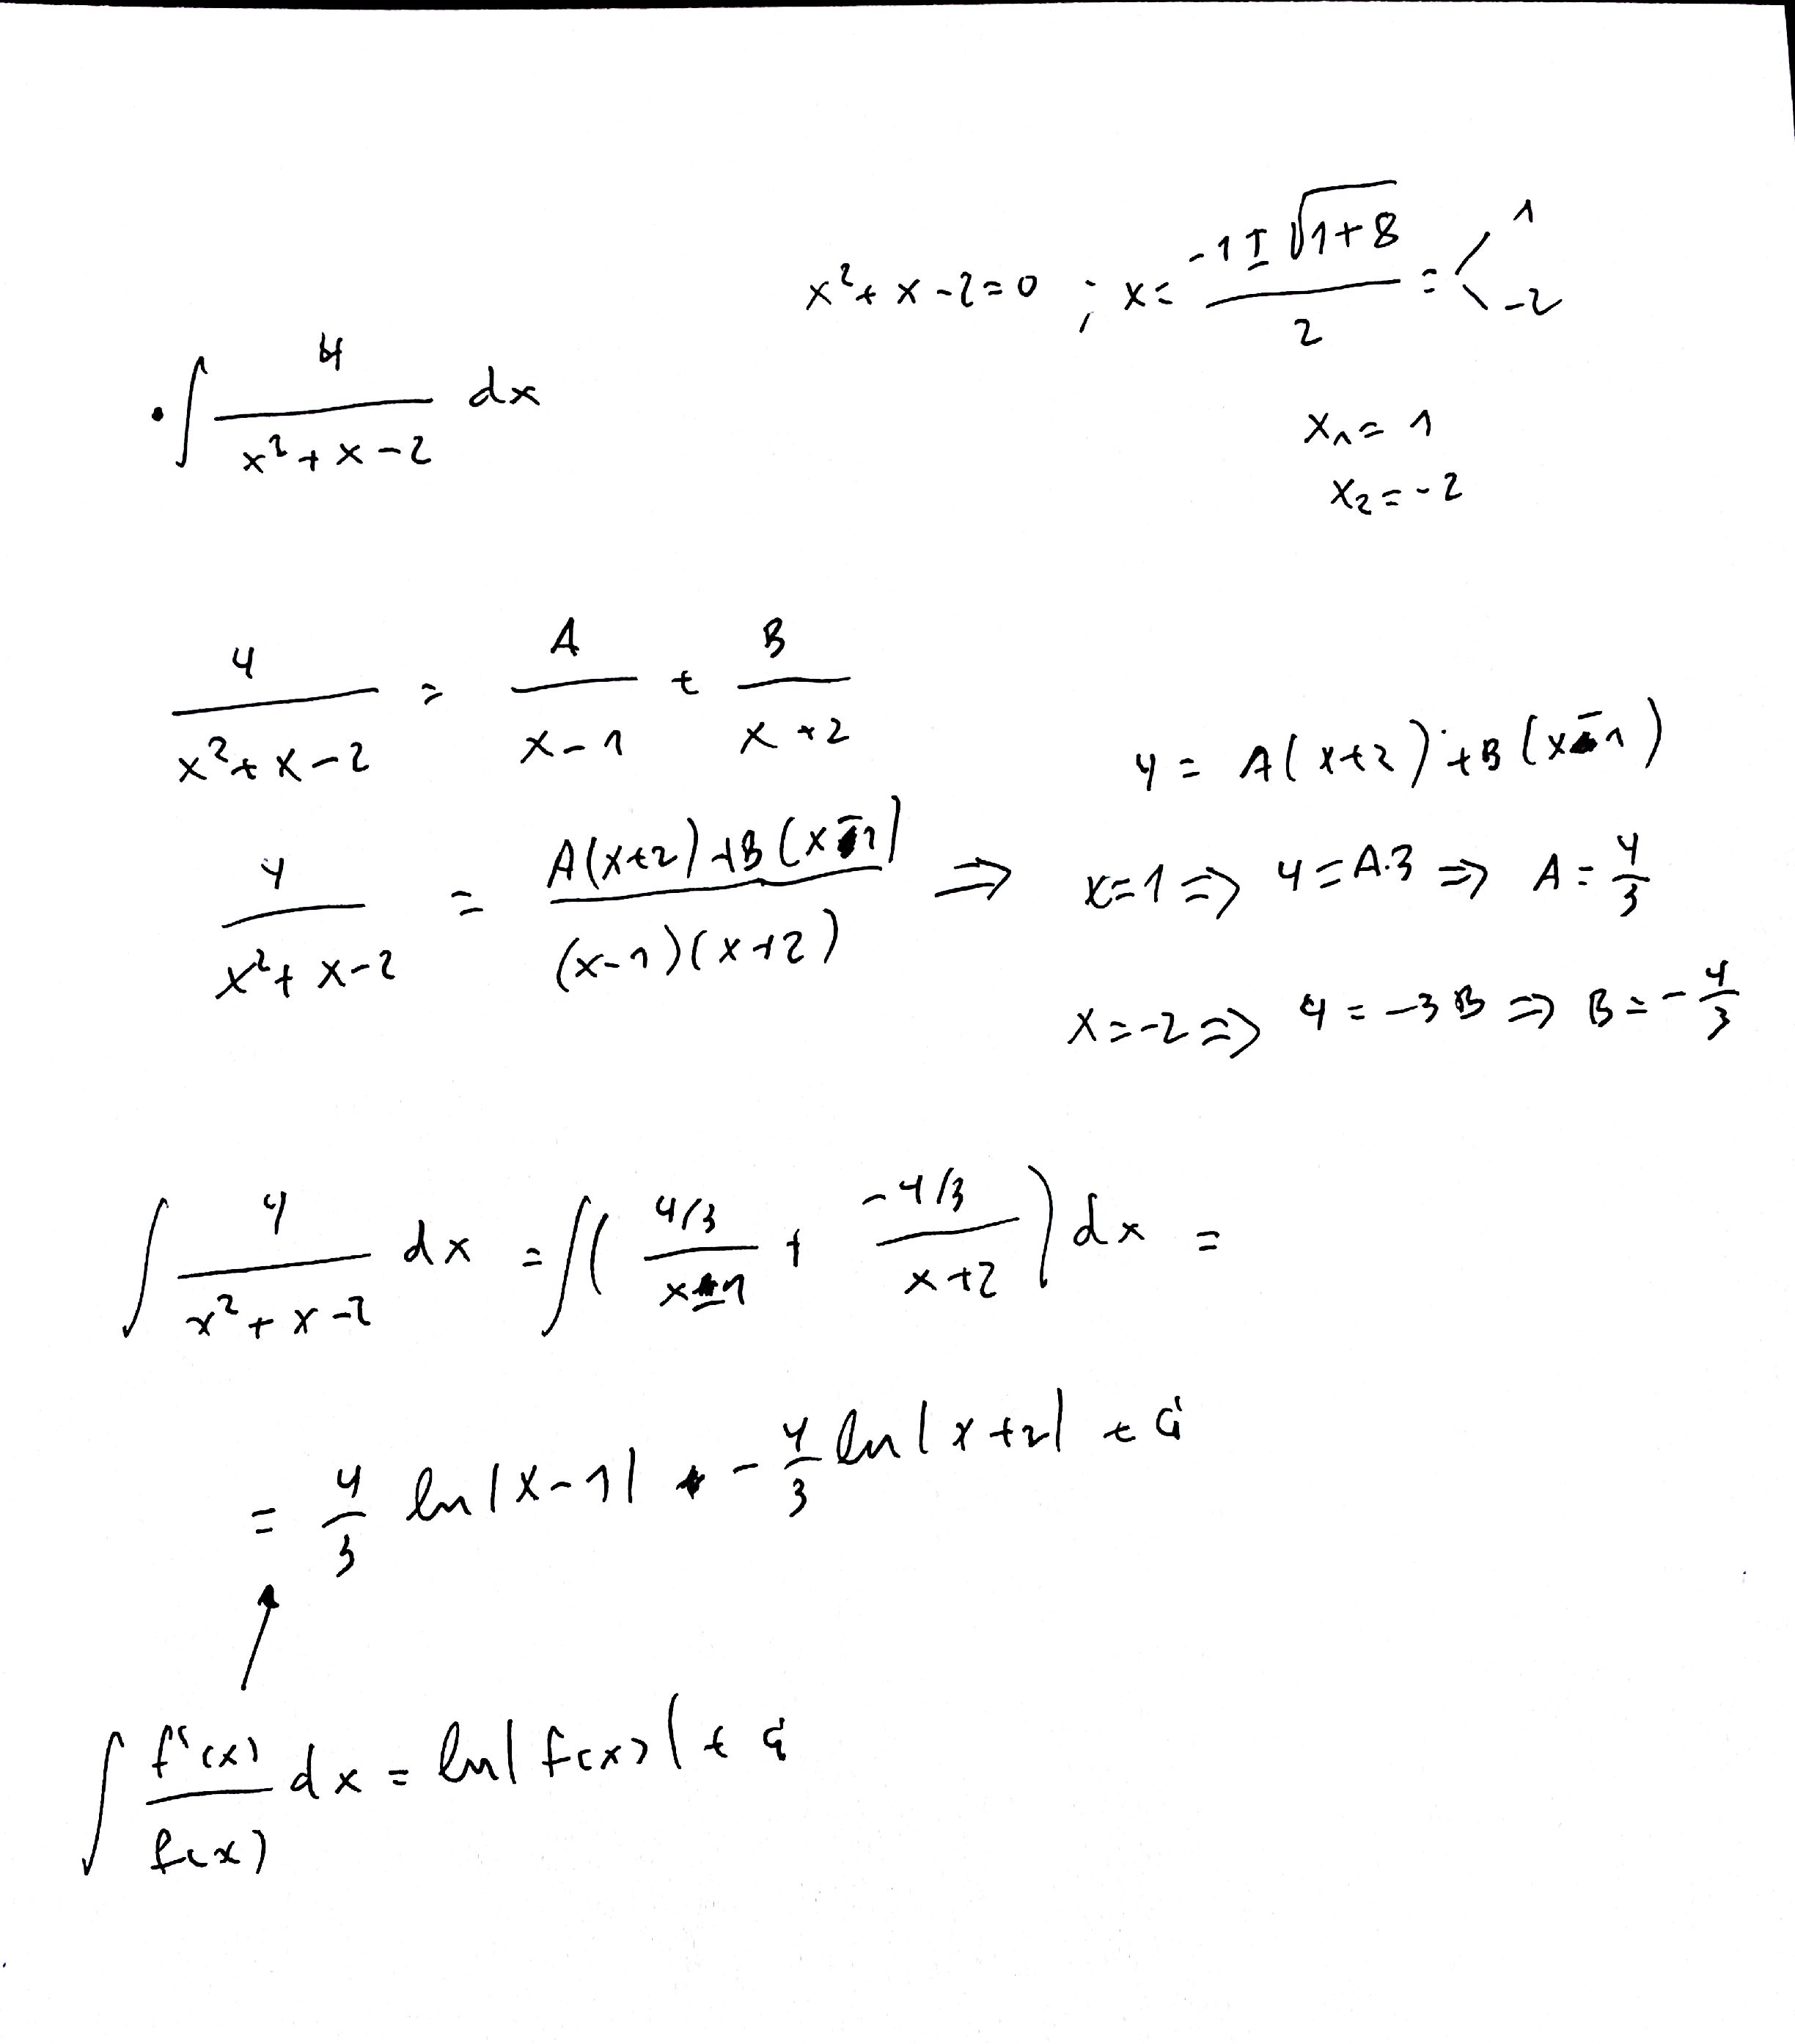 x²+x-2=0 ; x= (-1±√(1+8))/2 = < 1 -2
• ∫ 4/(x²+x-2) dx
x₁= 1
x₂=-2
4/(x²+x-2) = A/(x-1) + B/(x+2)
4 = A(x+2)+B(x-1)
4/(x²+x-2) = (A(x+2)+B(x-1))/((x-1)(x+2)) ⇒ x=1 ⇒ 4=A·3 ⇒ A= 4/3
x=-2 ⇒ 4=-3B ⇒ B=-4/3
∫ 4/(x²+x-2) dx = ∫( (4/3)/(x-1) + (-4/3)/(x+2) ) dx =
= 4/3 ln|x-1| - 4/3 ln|x+2| + C
∫ f'(x)/f(x) dx = ln|f(x)| + C